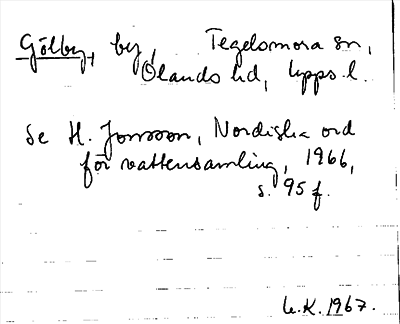 Gölby, by, Tegelsmora sn,
Olands hd, Upps. l.
Se H. Jonsson, Nordiska ord
för vattensamling, 1966,
s. 95 f.
U.K. 1967.